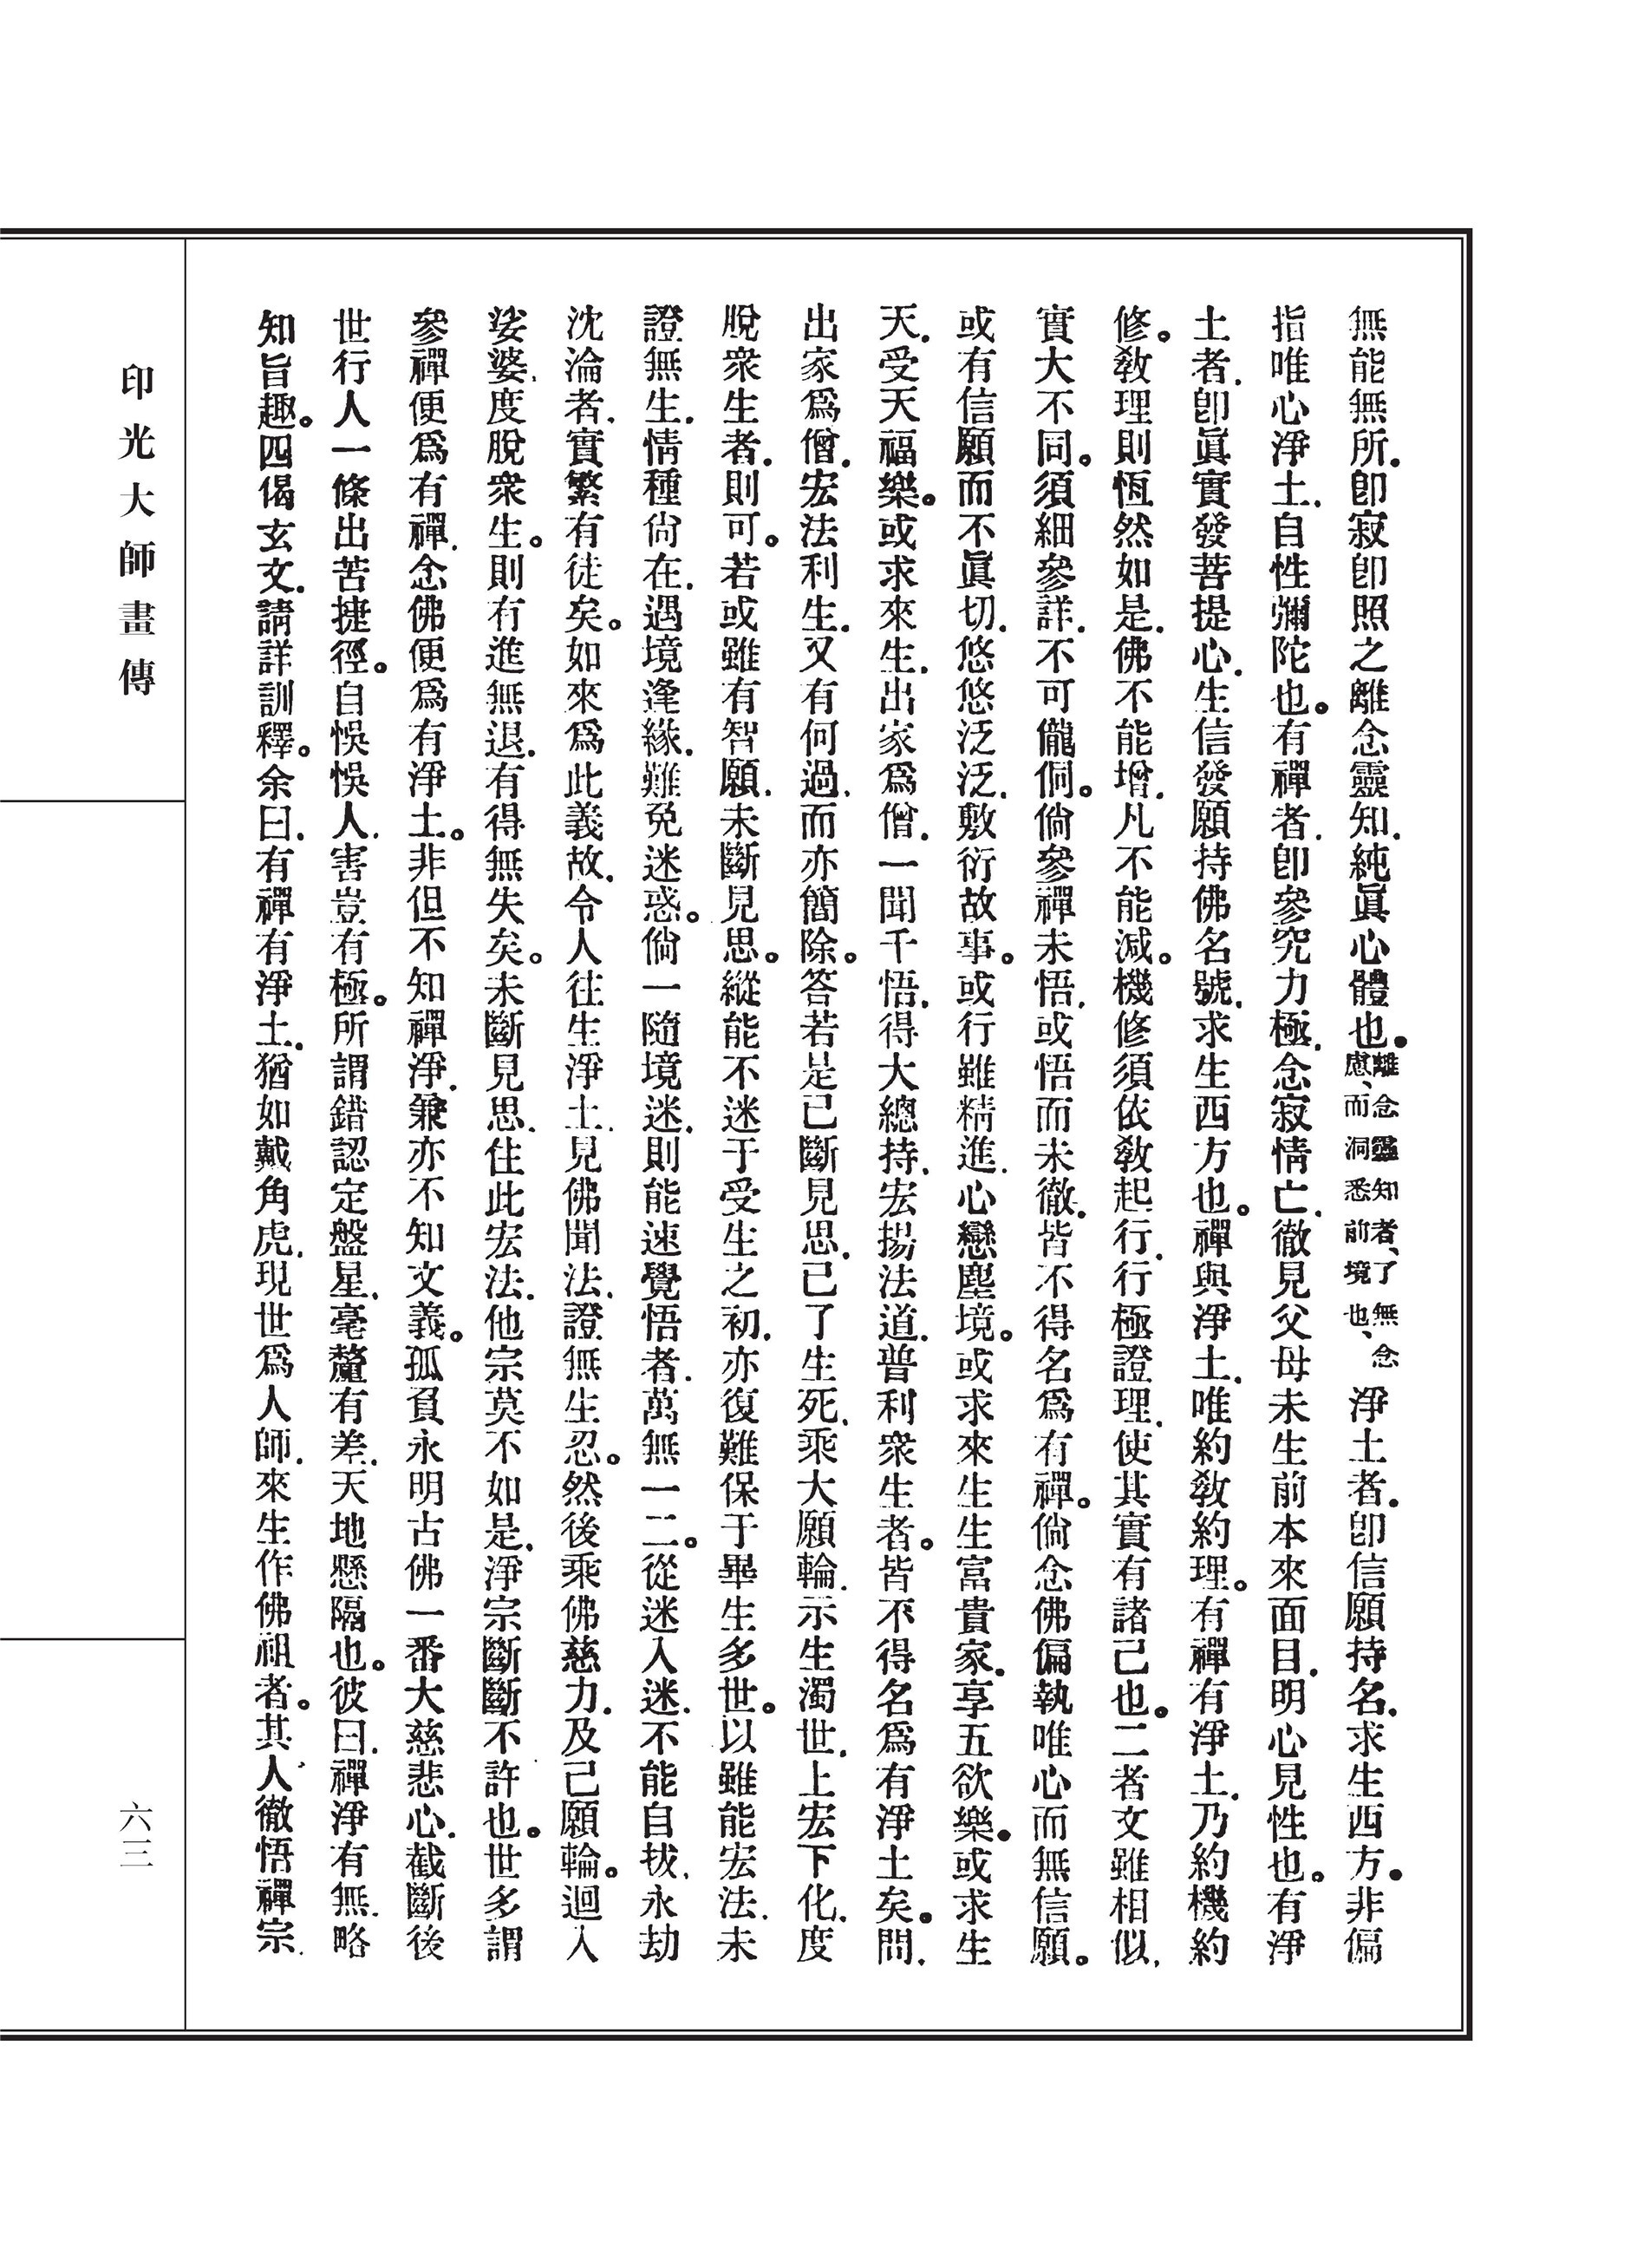 無能無所.卽寂卽照之離念靈知.純眞心體也。離念靈知者、了無念慮、而洞悉前境也、淨土者.卽信願持名.求生西方。非偏
指唯心淨土.自性彌陀也。有禪者.卽參究力極.念寂情亡.徹見父母未生前本來面目.明心見性也。有淨
土者.卽眞實發菩提心.生信發願持佛名號.求生西方也。禪與淨土.唯約敎約理。有禪有淨土.乃約機約
修。敎理則恆然如是.佛不能增.凡不能減。機修須依敎起行.行極證理.使其實有諸己也。二者文雖相似.
實大不同。須細參詳.不可儱侗。倘參禪未悟.或悟而未徹.皆不得名爲有禪。倘念佛偏執唯心而無信願。
或有信願而不眞切.悠悠泛泛.敷衍故事。或行雖精進.心戀塵境。或求來生生富貴家.享五欲樂。或求生
天.受天福樂。或求來生.出家爲僧.一聞千悟.得大總持.宏揚法道.普利衆生者。皆不得名爲有淨土矣。問.
出家爲僧.宏法利生.又有何過.而亦簡除。答若是已斷見思.已了生死.乘大願輪.示生濁世.上宏下化.度
脫衆生者.則可。若或雖有智願.未斷見思。縱能不迷于受生之初.亦復難保于畢生多世。以雖能宏法.未
證無生.情種尙在.遇境逢緣.難免迷惑。倘一隨境迷.則能速覺悟者.萬無一二。從迷入迷.不能自拔.永劫
沈淪者.實繁有徒矣。如來爲此義故.令人往生淨土.見佛聞法.證無生忍。然後乘佛慈力.及己願輪。迴入
娑婆.度脫衆生。則有進無退.有得無失矣。未斷見思.住此宏法.他宗莫不如是.淨宗斷斷不許也。世多謂
參禪便爲有禪.念佛便爲有淨土。非但不知禪淨.兼亦不知文義。孤負永明古佛一番大慈悲心.截斷後
世行人一條出苦捷徑。自悞悞人.害豈有極。所謂錯認定盤星.毫釐有差.天地懸隔也。彼曰.禪淨有無.略
知旨趣。四偈玄文.請詳訓釋。余曰.有禪有淨土.猶如戴角虎.現世爲人師.來生作佛祖者。其人徹悟禪宗.
印光大師畫傳
六三